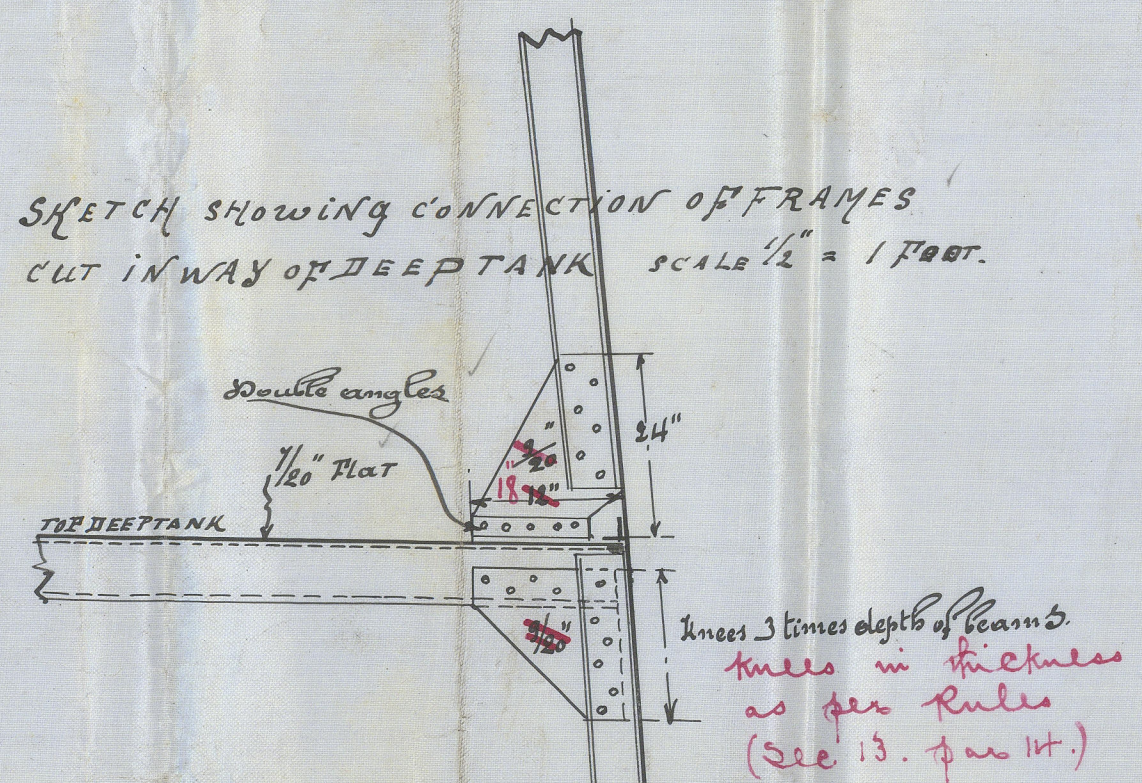 SKETCH SHOWING CONNECTION OF FRAMES
CUT IN WAY OF DEEP TANK SCALE 1/2" = 1 FOOT.
Double angles
24"
9/20"
7/20" Flat
18" 12"
TOP DEEPTANK
9/20"
Knees 3 times depth of beams.
Knees in thickness
as per Rules
(Sec 13. par 14.)